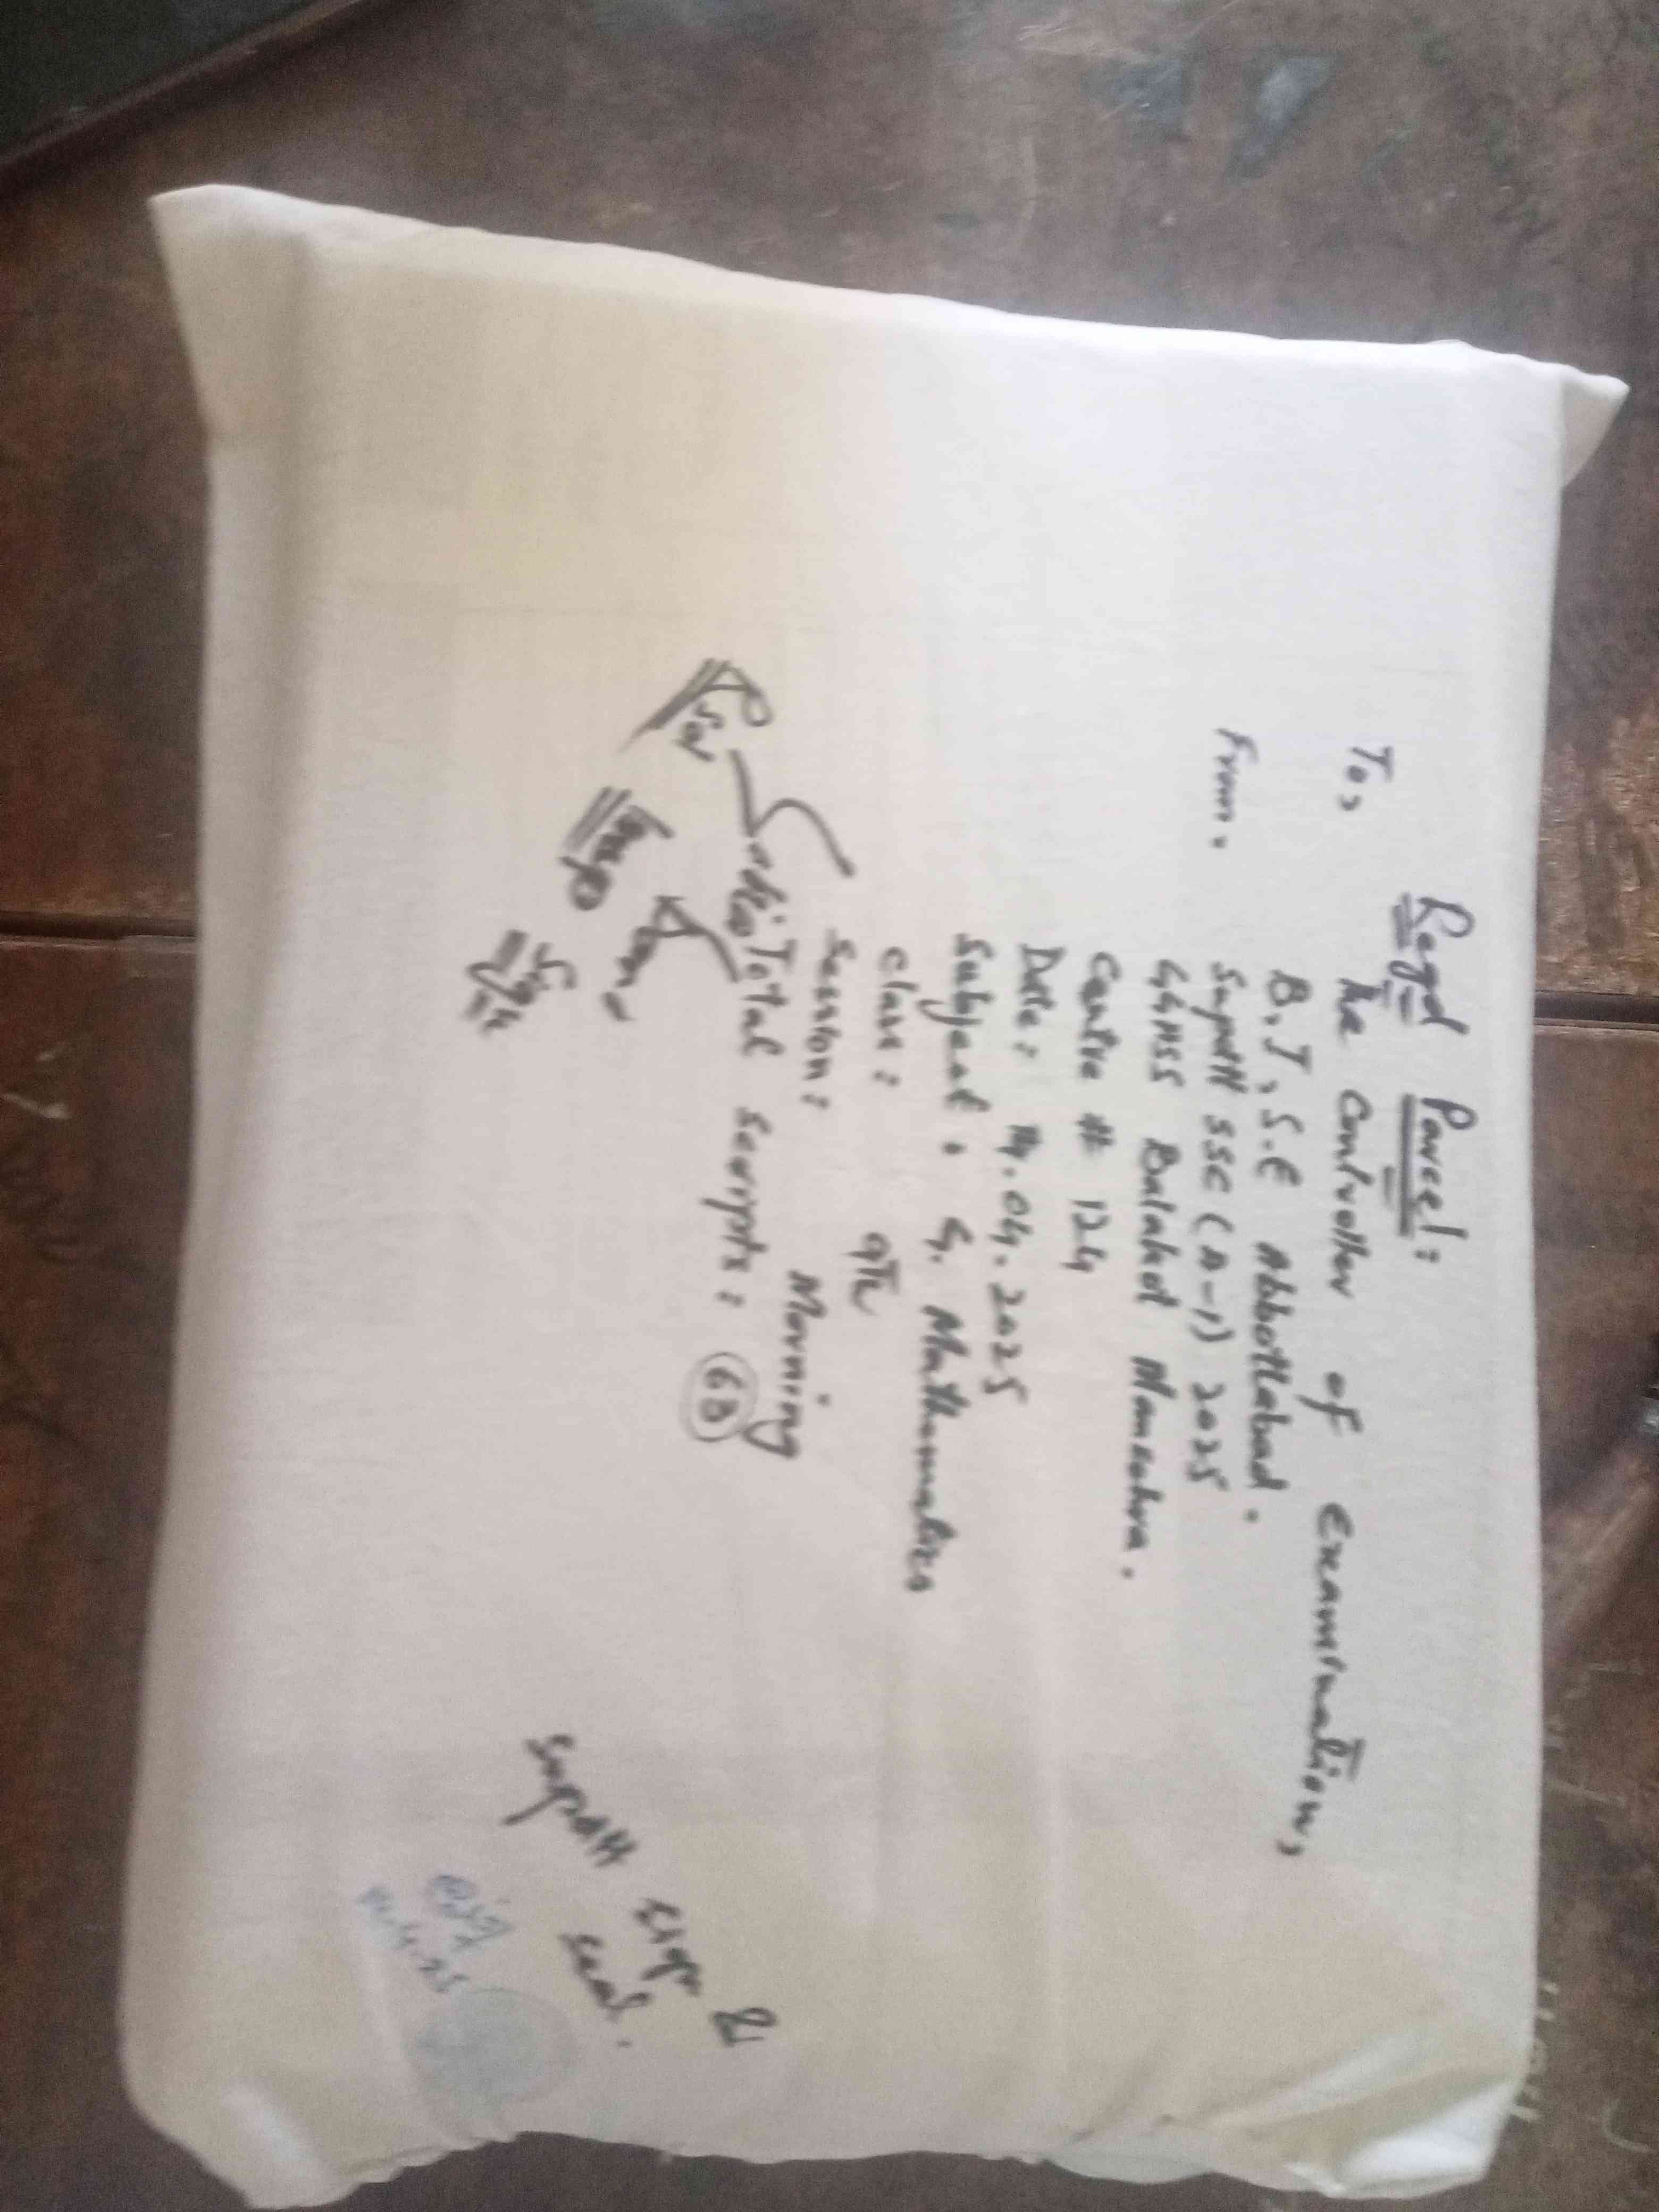 Regd Parcel:
To, The Controller of Examination,
B.I.S.E Abbottabad.
From. Supdtt SSC (A-1) 2025
GGHSS Balakot Mansehra.
Centre # 124
Date: .04.2025
Subject: G. Mathematics
Class: 9th
Session: Morning
Total Scripts: 63
Insp
Sign
Supdtt sign &
seal.